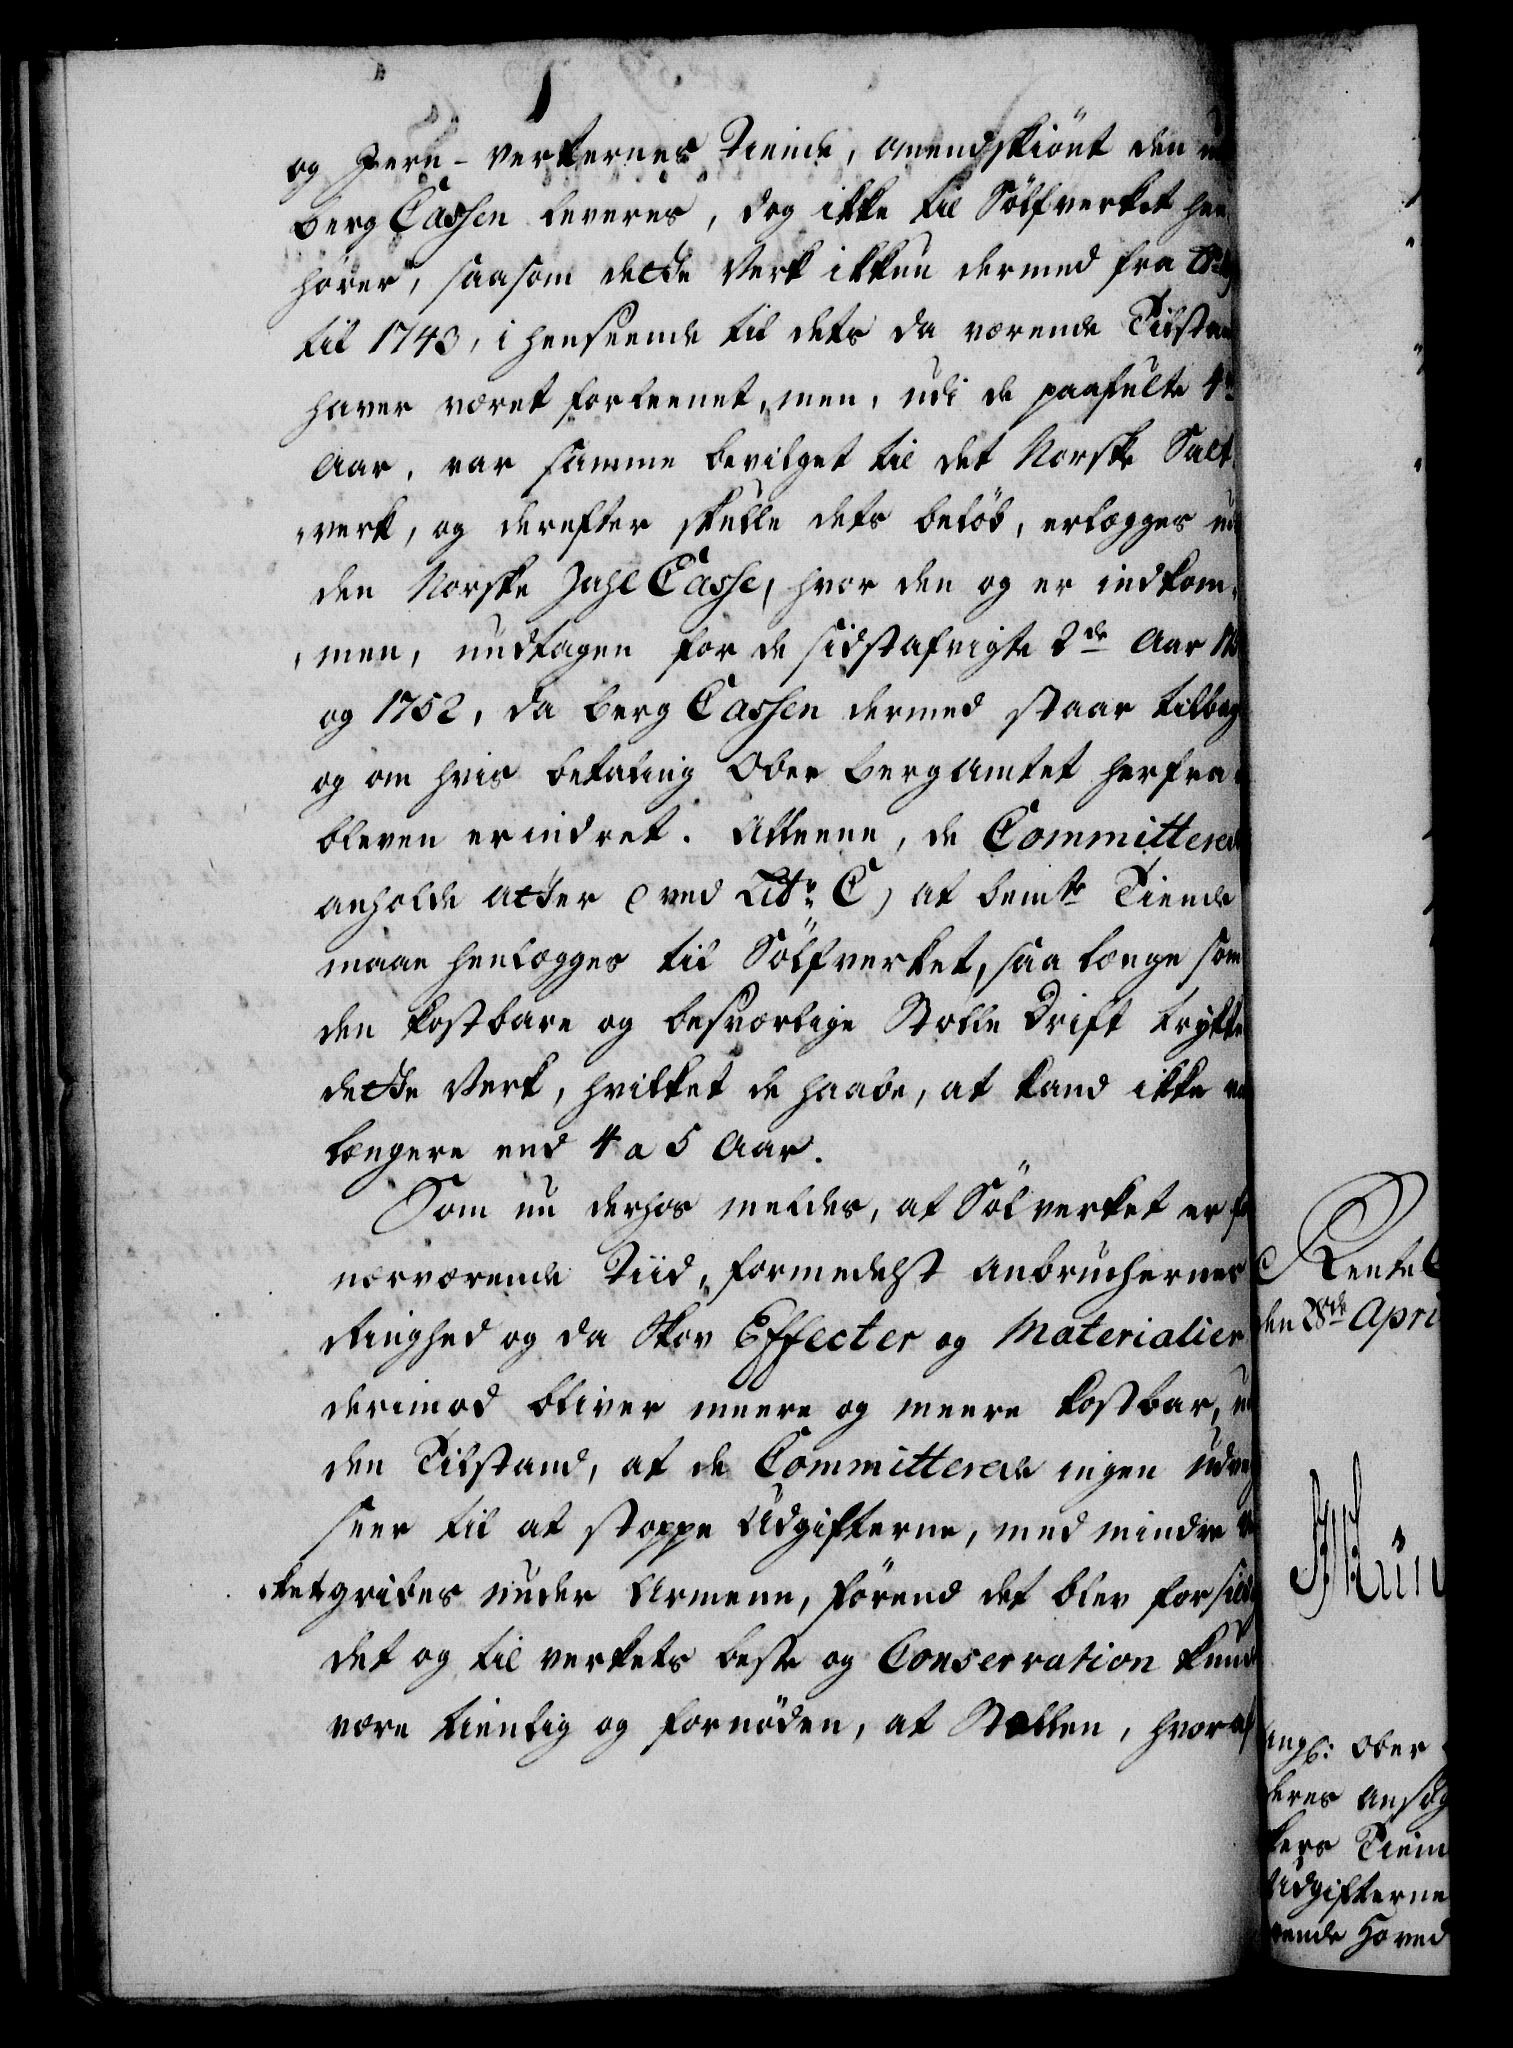 og Jern-Verkernes Tiende, omendskiönt den
berg Cassen leveres, dog ikke til Sölfverket hen
hörer, saasom dette Verk ikkun dermed fra
til 1743, i henseende til dets da værende Tilstan
haver været forleenet, men, udi de paafulte 4re
Aar, var samme bevilget til det Norske Salt
verk, og derefter skulle dets belöb, erlægges ud
den Norske Zahl Casse, hvor den og er indkom-
men, undtagen for de sidstafvigte 2de Aar
og 1752, da berg Cassen dermed staar tilbag
og om hvis betaling Ober bergamtet herfra
bleven erindret. Alleene, de Committered
anholde atter (ved Litr: C) at bemte Tiende
maae henlægges til Sölfverket, saa længe som
den kostbare og besværlige Stolle Drift trykke
dette Verk, hvilket de haabe, at kand ikke
længere end 4 a 5 Aar.
Som nu derhos meldes, at Sölverket er
nærværende Tiid, formedelst Anbruchernes
Ringhed og da Skov Effecter og Materialier
derimod bliver meere og meere kostbar,
den Tilstand, at de Committerede ingen udvey
seer til at stoppe Udgifterne, med mindre
ket gribes under Armene, förend det blev for sild
det og til verkets beste og Conservation kund
være tienlig og fornöden, at Stollen, hvoraf
Rente
den 28de Apri
angl: Ober
deres Ansög
kers Tiein
Udgifterne
ende Hoved